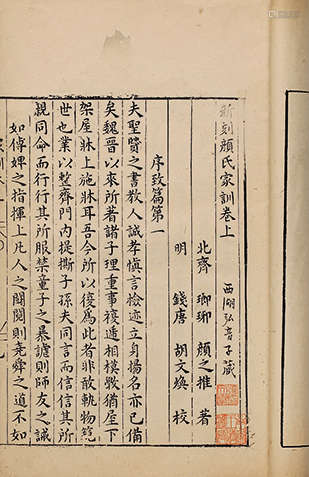 新刻顏氏家訓卷上
西湖弘音子蔵
北齊 瑯琊 顏之推 著
明 錢唐 胡文煥 校
序致篇第一
夫聖賢之書教人誠孝慎言檢迹立身揚名亦已備
矣魏晉以來所著諸子理重事複遞相模斆猶屋下
架屋牀上施牀耳吾今所以復為此者非敢軌物範
世也業以整齊門內提撕子孫夫同言而信信其所
親同命而行行其所服禁童子之暴謔則師友之誡
如傅婢之指揮止凡人之鬪鬩則堯舜之道不如